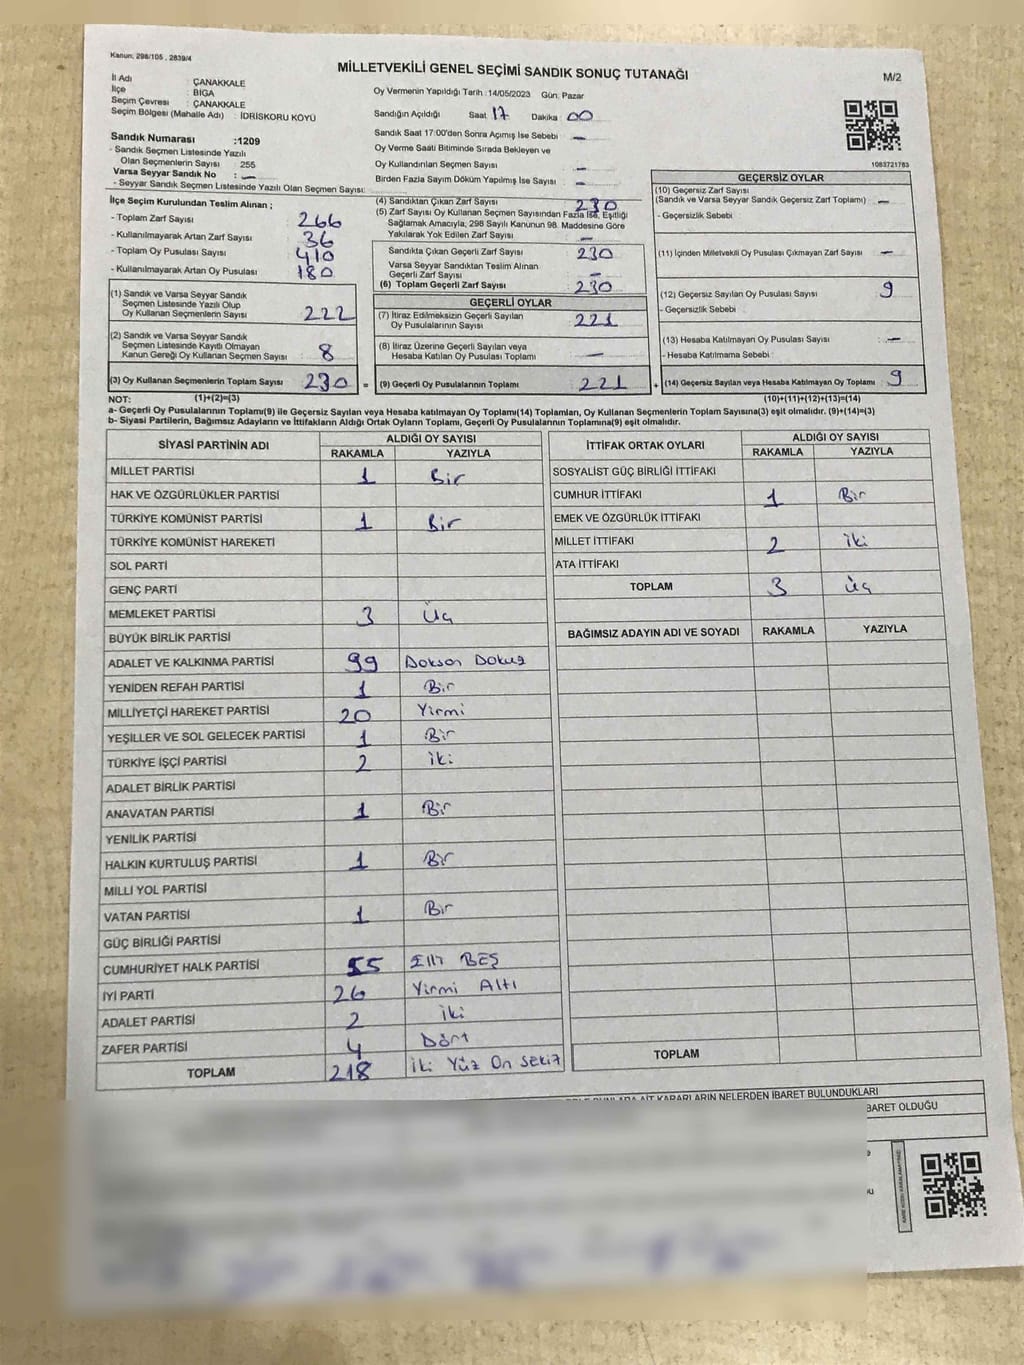 Kanun: 298/105 , 2839/4
MİLLETVEKİLİ GENEL SEÇİMİ SANDIK SONUÇ TUTANAĞI
M/2
İl Adı : ÇANAKKALE
İlçe : BİGA
Seçim Çevresi : ÇANAKKALE
Seçim Bölgesi (Mahalle Adı) : İDRİSKORU KÖYÜ
Sandık Numarası :1209
- Sandık Seçmen Listesinde Yazılı
Olan Seçmenlerin Sayısı : 255
Varsa Seyyar Sandık No : —
- Seyyar Sandık Seçmen Listesinde Yazılı Olan Seçmen Sayısı:
Oy Vermenin Yapıldığı Tarih :14/05/2023 Gün: Pazar
Sandığın Açıldığı Saat 17 Dakika 00
Sandık Saat 17:00'den Sonra Açımış İse Sebebi —
Oy Verme Saati Bitiminde Sırada Bekleyen ve
Oy Kullandırılan Seçmen Sayısı —
Birden Fazla Sayım Döküm Yapılmış İse Sayısı —
1083721763
İlçe Seçim Kurulundan Teslim Alınan ;
- Toplam Zarf Sayısı 266
- Kullanılmayarak Artan Zarf Sayısı 36
- Toplam Oy Pusulası Sayısı 410
- Kullanılmayarak Artan Oy Pusulası 180
(1) Sandık ve Varsa Seyyar Sandık
Seçmen Listesinde Yazılı Olup
Oy Kullanan Seçmenlerin Sayısı 222
(2) Sandık ve Varsa Seyyar Sandık
Seçmen Listesinde Kayıtlı Olmayan
Kanun Gereği Oy Kullanan Seçmen Sayısı 8
(3) Oy Kullanan Seçmenlerin Toplam Sayısı 230 =
(4) Sandıktan Çıkan Zarf Sayısı 230
(5) Zarf Sayısı Oy Kullanan Seçmen Sayısından Fazla İse, Eşitliği
Sağlamak Amacıyla, 298 Sayılı Kanunun 98. Maddesine Göre
Yakılarak Yok Edilen Zarf Sayısı —
Sandıkta Çıkan Geçerli Zarf Sayısı 230
Varsa Seyyar Sandıktan Teslim Alınan
Geçerli Zarf Sayısı —
(6) Toplam Geçerli Zarf Sayısı 230
GEÇERLİ OYLAR
(7) İtiraz Edilmeksizin Geçerli Sayılan
Oy Pusulalarının Sayısı 221
(8) İtiraz Üzerine Geçerli Sayılan veya
Hesaba Katılan Oy Pusulası Toplamı —
(9) Geçerli Oy Pusulalarının Toplamı 221 +
GEÇERSİZ OYLAR
(10) Geçersiz Zarf Sayısı
(Sandık ve Varsa Seyyar Sandık Geçersiz Zarf Toplamı) —
- Geçersizlik Sebebi
(11) İçinden Milletvekili Oy Pusulası Çıkmayan Zarf Sayısı —
(12) Geçersiz Sayılan Oy Pusulası Sayısı 9
- Geçersizlik Sebebi :
(13) Hesaba Katılmayan Oy Pusulası Sayısı : —
- Hesaba Katılmama Sebebi :
(14) Geçersiz Sayılan veya Hesaba Katılmayan Oy Toplamı 9
NOT: (1)+(2)=(3) (10)+(11)+(12)+(13)=(14)
a- Geçerli Oy Pusulalarının Toplamı(9) ile Geçersiz Sayılan veya Hesaba katılmayan Oy Toplamı(14) Toplamları, Oy Kullanan Seçmenlerin Toplam Sayısına(3) eşit olmalıdır. (9)+(14)=(3)
b- Siyasi Partilerin, Bağımsız Adayların ve İttifakların Aldığı Ortak Oyların Toplamı, Geçerli Oy Pusulalarının Toplamına(9) eşit olmalıdır.
SİYASİ PARTİNİN ADI ALDIĞI OY SAYISI
RAKAMLA YAZIYLA
MİLLET PARTİSİ 1 Bir
HAK VE ÖZGÜRLÜKLER PARTİSİ
TÜRKİYE KOMÜNİST PARTİSİ 1 Bir
TÜRKİYE KOMÜNİST HAREKETİ
SOL PARTİ
GENÇ PARTİ
MEMLEKET PARTİSİ 3 Üç
BÜYÜK BİRLİK PARTİSİ
ADALET VE KALKINMA PARTİSİ 99 Doksan Dokuz
YENİDEN REFAH PARTİSİ 1 Bir
MİLLİYETÇİ HAREKET PARTİSİ 20 Yirmi
YEŞİLLER VE SOL GELECEK PARTİSİ 1 Bir
TÜRKİYE İŞÇİ PARTİSİ 2 iki
ADALET BİRLİK PARTİSİ
ANAVATAN PARTİSİ 1 Bir
YENİLİK PARTİSİ
HALKIN KURTULUŞ PARTİSİ 1 Bir
MİLLİ YOL PARTİSİ
VATAN PARTİSİ 1 Bir
GÜÇ BİRLİĞİ PARTİSİ
CUMHURİYET HALK PARTİSİ 55 Elli BEŞ
İYİ PARTİ 26 Yirmi Altı
ADALET PARTİSİ 2 iki
ZAFER PARTİSİ 4 Dört
TOPLAM 218 iki Yüz On sekiz
İTTİFAK ORTAK OYLARI ALDIĞI OY SAYISI
RAKAMLA YAZIYLA
SOSYALİST GÜÇ BİRLİĞİ İTTİFAKI
CUMHUR İTTİFAKI 1 Bir
EMEK VE ÖZGÜRLÜK İTTİFAKI
MİLLET İTTİFAKI 2 iki
ATA İTTİFAKI
TOPLAM 3 üç
BAĞIMSIZ ADAYIN ADI VE SOYADI RAKAMLA YAZIYLA
TOPLAM
AİT KARARLARIN NELERDEN İBARET BULUNDUKLARI
İBARET OLDUĞU